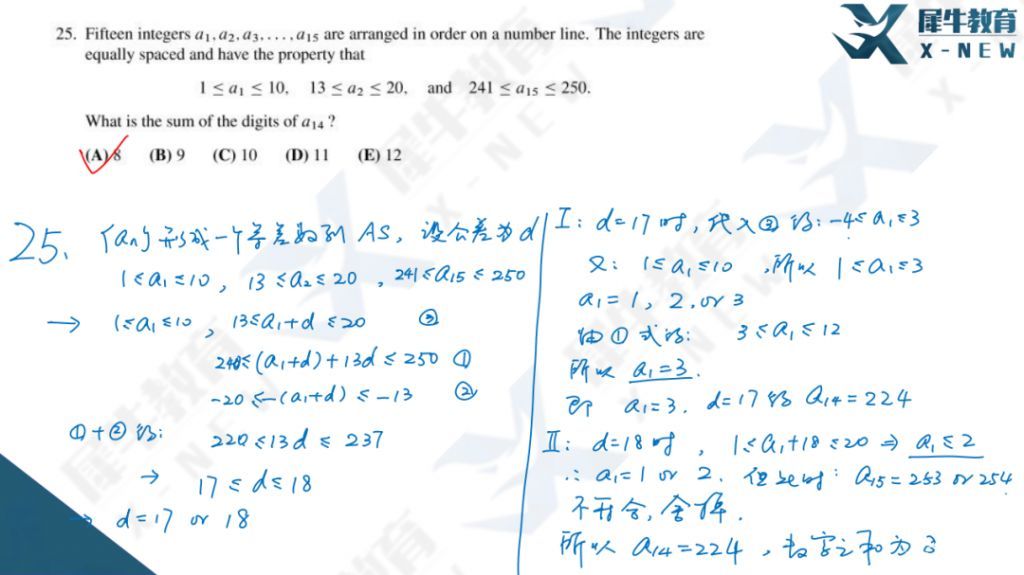 25. Fifteen integers a₁, a₂, a₃, ..., a₁₅ are arranged in order on a number line. The integers are
equally spaced and have the property that
1 ≤ a₁ ≤ 10, 13 ≤ a₂ ≤ 20, and 241 ≤ a₁₅ ≤ 250.
What is the sum of the digits of a₁₄ ?
(A) 8 (B) 9 (C) 10 (D) 11 (E) 12
犀牛教育
X-NEW
25. {aₙ}形成一个等差数列 AS, 设公差为d
1≤a₁≤10, 13≤a₂≤20, 241≤a₁₅≤250
→ 1≤a₁≤10, 13≤a₁+d≤20 ③
240≤(a₁+d)+13d≤250 ①
-20≤-(a₁+d)≤-13 ②
①+②得:
220≤13d≤237
→ 17≤d≤18
→ d=17 or 18
I: d=17时, 代入③得: -4≤a₁≤3
又: 1≤a₁≤10, 所以 1≤a₁≤3
a₁=1, 2, or 3
由①式得: 3≤a₁≤12
所以 a₁=3.
即 a₁=3. d=17 得 a₁₄=224
II: d=18时, 1≤a₁+18≤20 ⇒ a₁≤2
∴ a₁=1 or 2. 但此时: a₁₅=253 or 254
不符合, 舍掉.
所以 a₁₄=224, 数字之和为8